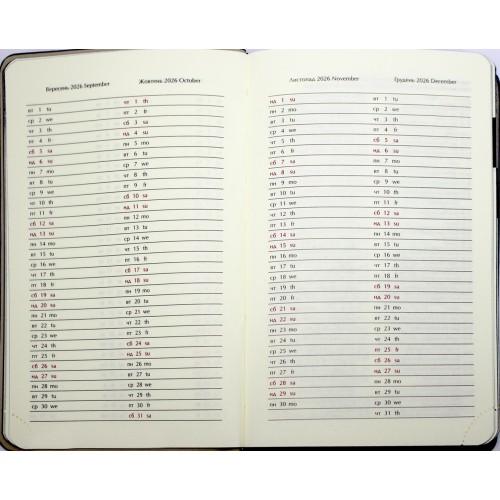 Вересень 2026 September
вт 1 tu
ср 2 we
чт 3 th
пт 4 fr
сб 5 sa
нд 6 su
пн 7 mo
вт 8 tu
ср 9 we
чт 10 th
пт 11 fr
сб 12 sa
нд 13 su
пн 14 mo
вт 15 tu
ср 16 we
чт 17 th
пт 18 fr
сб 19 sa
нд 20 su
пн 21 mo
вт 22 tu
ср 23 we
чт 24 th
пт 25 fr
сб 26 sa
нд 27 su
пн 28 mo
вт 29 tu
ср 30 we
Жовтень 2026 October
чт 1 th
пт 2 fr
сб 3 sa
нд 4 su
пн 5 mo
вт 6 tu
ср 7 we
чт 8 th
пт 9 fr
сб 10 sa
нд 11 su
пн 12 mo
вт 13 tu
ср 14 we
чт 15 th
пт 16 fr
сб 17 sa
нд 18 su
пн 19 mo
вт 20 tu
ср 21 we
чт 22 th
пт 23 fr
сб 24 sa
нд 25 su
пн 26 mo
вт 27 tu
ср 28 we
чт 29 th
пт 30 fr
сб 31 sa
Листопад 2026 November
нд 1 su
пн 2 mo
вт 3 tu
ср 4 we
чт 5 th
пт 6 fr
сб 7 sa
нд 8 su
пн 9 mo
вт 10 tu
ср 11 we
чт 12 th
пт 13 fr
сб 14 sa
нд 15 su
пн 16 mo
вт 17 tu
ср 18 we
чт 19 th
пт 20 fr
сб 21 sa
нд 22 su
пн 23 mo
вт 24 tu
ср 25 we
чт 26 th
пт 27 fr
сб 28 sa
нд 29 su
пн 30 mo
Грудень 2026 December
вт 1 tu
ср 2 we
чт 3 th
пт 4 fr
сб 5 sa
нд 6 su
пн 7 mo
вт 8 tu
ср 9 we
чт 10 th
пт 11 fr
сб 12 sa
нд 13 su
пн 14 mo
вт 15 tu
ср 16 we
чт 17 th
пт 18 fr
сб 19 sa
нд 20 su
пн 21 mo
вт 22 tu
ср 23 we
чт 24 th
пт 25 fr
сб 26 sa
нд 27 su
пн 28 mo
вт 29 tu
ср 30 we
чт 31 th